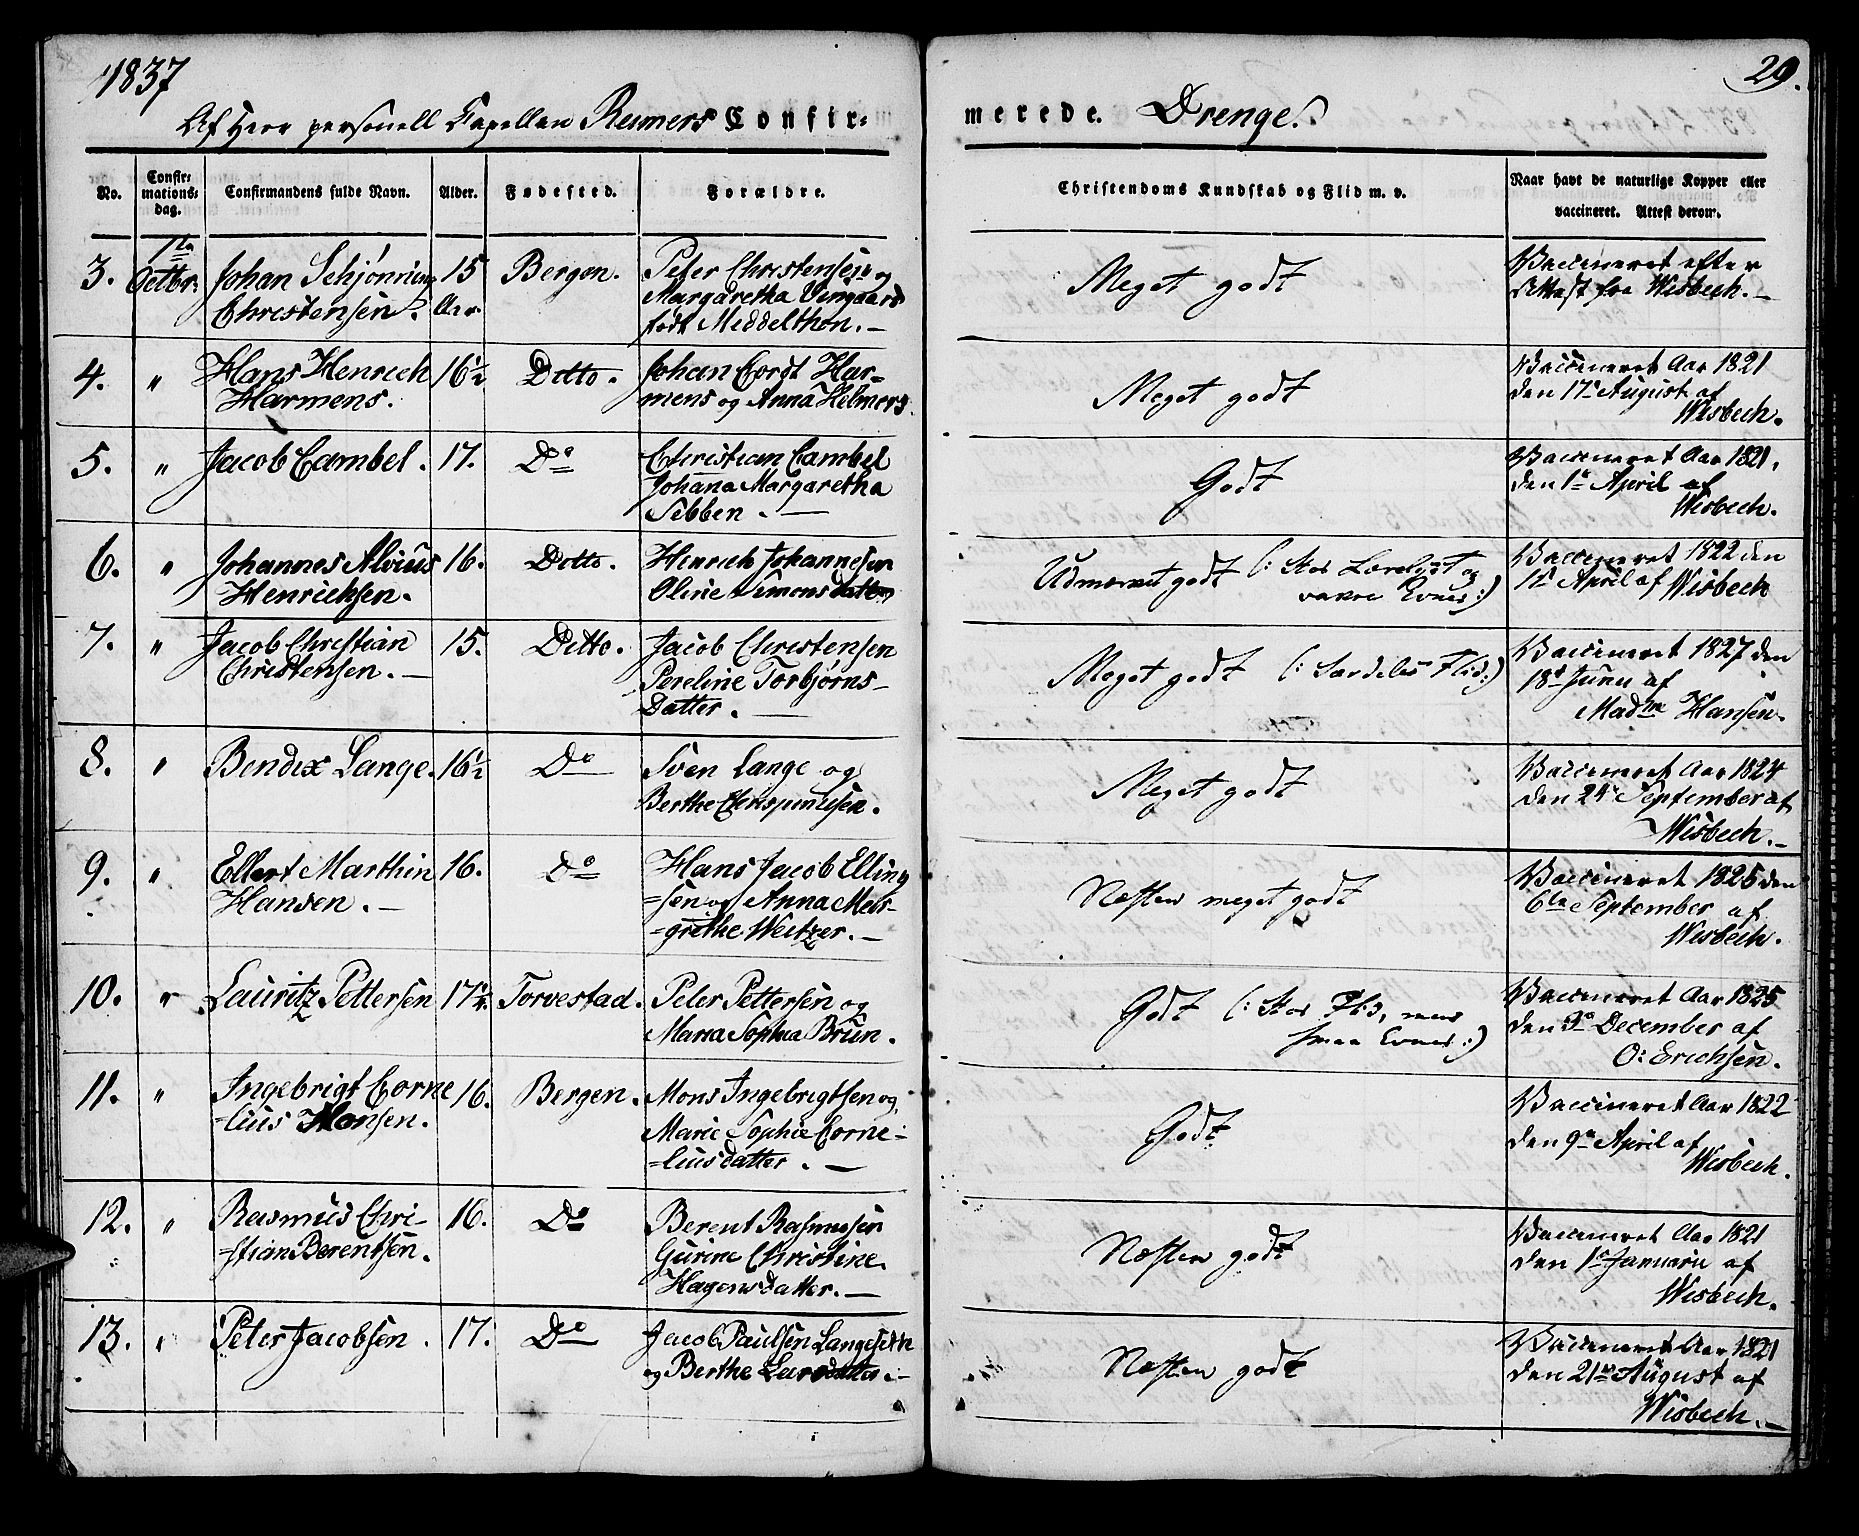 1837
29.
Af Herr personell Capellan Reimers Confir-
merede. Drenge.
No.
Confir-
mations-
dag.
Confirmandens fulde Navn.
Alder.
Fødested.
Forældre.
Christendoms Kundskab og Flid m. v.
Naar havt de naturlige Kopper eller
vaccineret. Attest derom.
3. 1ste Octbr. Johan Schjønning 15 Bergen. Peter Christensen og
Christensen. Aar Margaretha Vingaard
født Meddelthon. —
Meget godt
Vaccineret efter
Attest fra Wisbech. —
4. " Hans Henrich 16½ Ditto. Johan Cordt Har=
Harmens. mens og Anna Helmers.
Meget godt
Vaccineret Aar 1821
den 17de August af
Wisbech.
5. " Jacob Cambel. 17. Do Christian Cambel
Johana Margaretha
Sebben. —
Godt
Vaccineret Aar 1821,
den 1ste April af
Wisbech.
6. " Johannes Alvius 16. Ditto. Henrich Johannesen
Henrichsen. Oline Simonsdatter
Udmærket godt (: Stor Lærelyst og
vakre Evner :)
Vaccineret 1822 den
April af Wisbech
7. " Jacob Christian 15. Ditto. Jacob Christensen
Christensen. — Pereline Torbjørns-
Datter. —
Meget godt (: Særdeles Flid :)
Vaccineret 1827 den
18d Junii af
Madme Hansen.
8. " Bendix Lange. 16½ Do Sven Lange og
Berthe
Meget godt
Vaccineret Aar 1824
den 24de September af
Wisbech. —
9. " Ellert Marthin 16. Do Hans Jacob Elling
Hansen. — =sen og Anna Mar-
=grethe Weitzer. —
Næsten meget godt
Vaccineret 1825 den
6te September af
Wisbech.
10. " Lauritz Pettersen 17½. Torvestad. Peter Pettersen og
Maria Sophia Brun.
Godt (: Stor Flid, men
smaa Evner :)
Vaccineret Aar 1825
den 3de December af
O: Erichsen.
11. " Ingebrigt Corne 16. Bergen. Mons Ingebrigtsen og
=lius Monsen. Marie Sophie Corne-
=liusdatter. —
Godt
Vaccineret Aar 1822
den 9de April af
Wisbech.
12. " Rasmus Chri- 16. Do Berent Rasmusen
=stian Berentsen. Gurine Christine
Hagensdatter. —
Næsten godt
Vaccineret Aar 1821
den 1ste Januarii af
Wisbech.
13. " Peter Jacobsen. 17. Do Jacob Paulsen Langesetn
og Berthe Larsdatter. —
Næsten godt
Vaccineret Aar 1821
den 21de August af
Wisbech. —